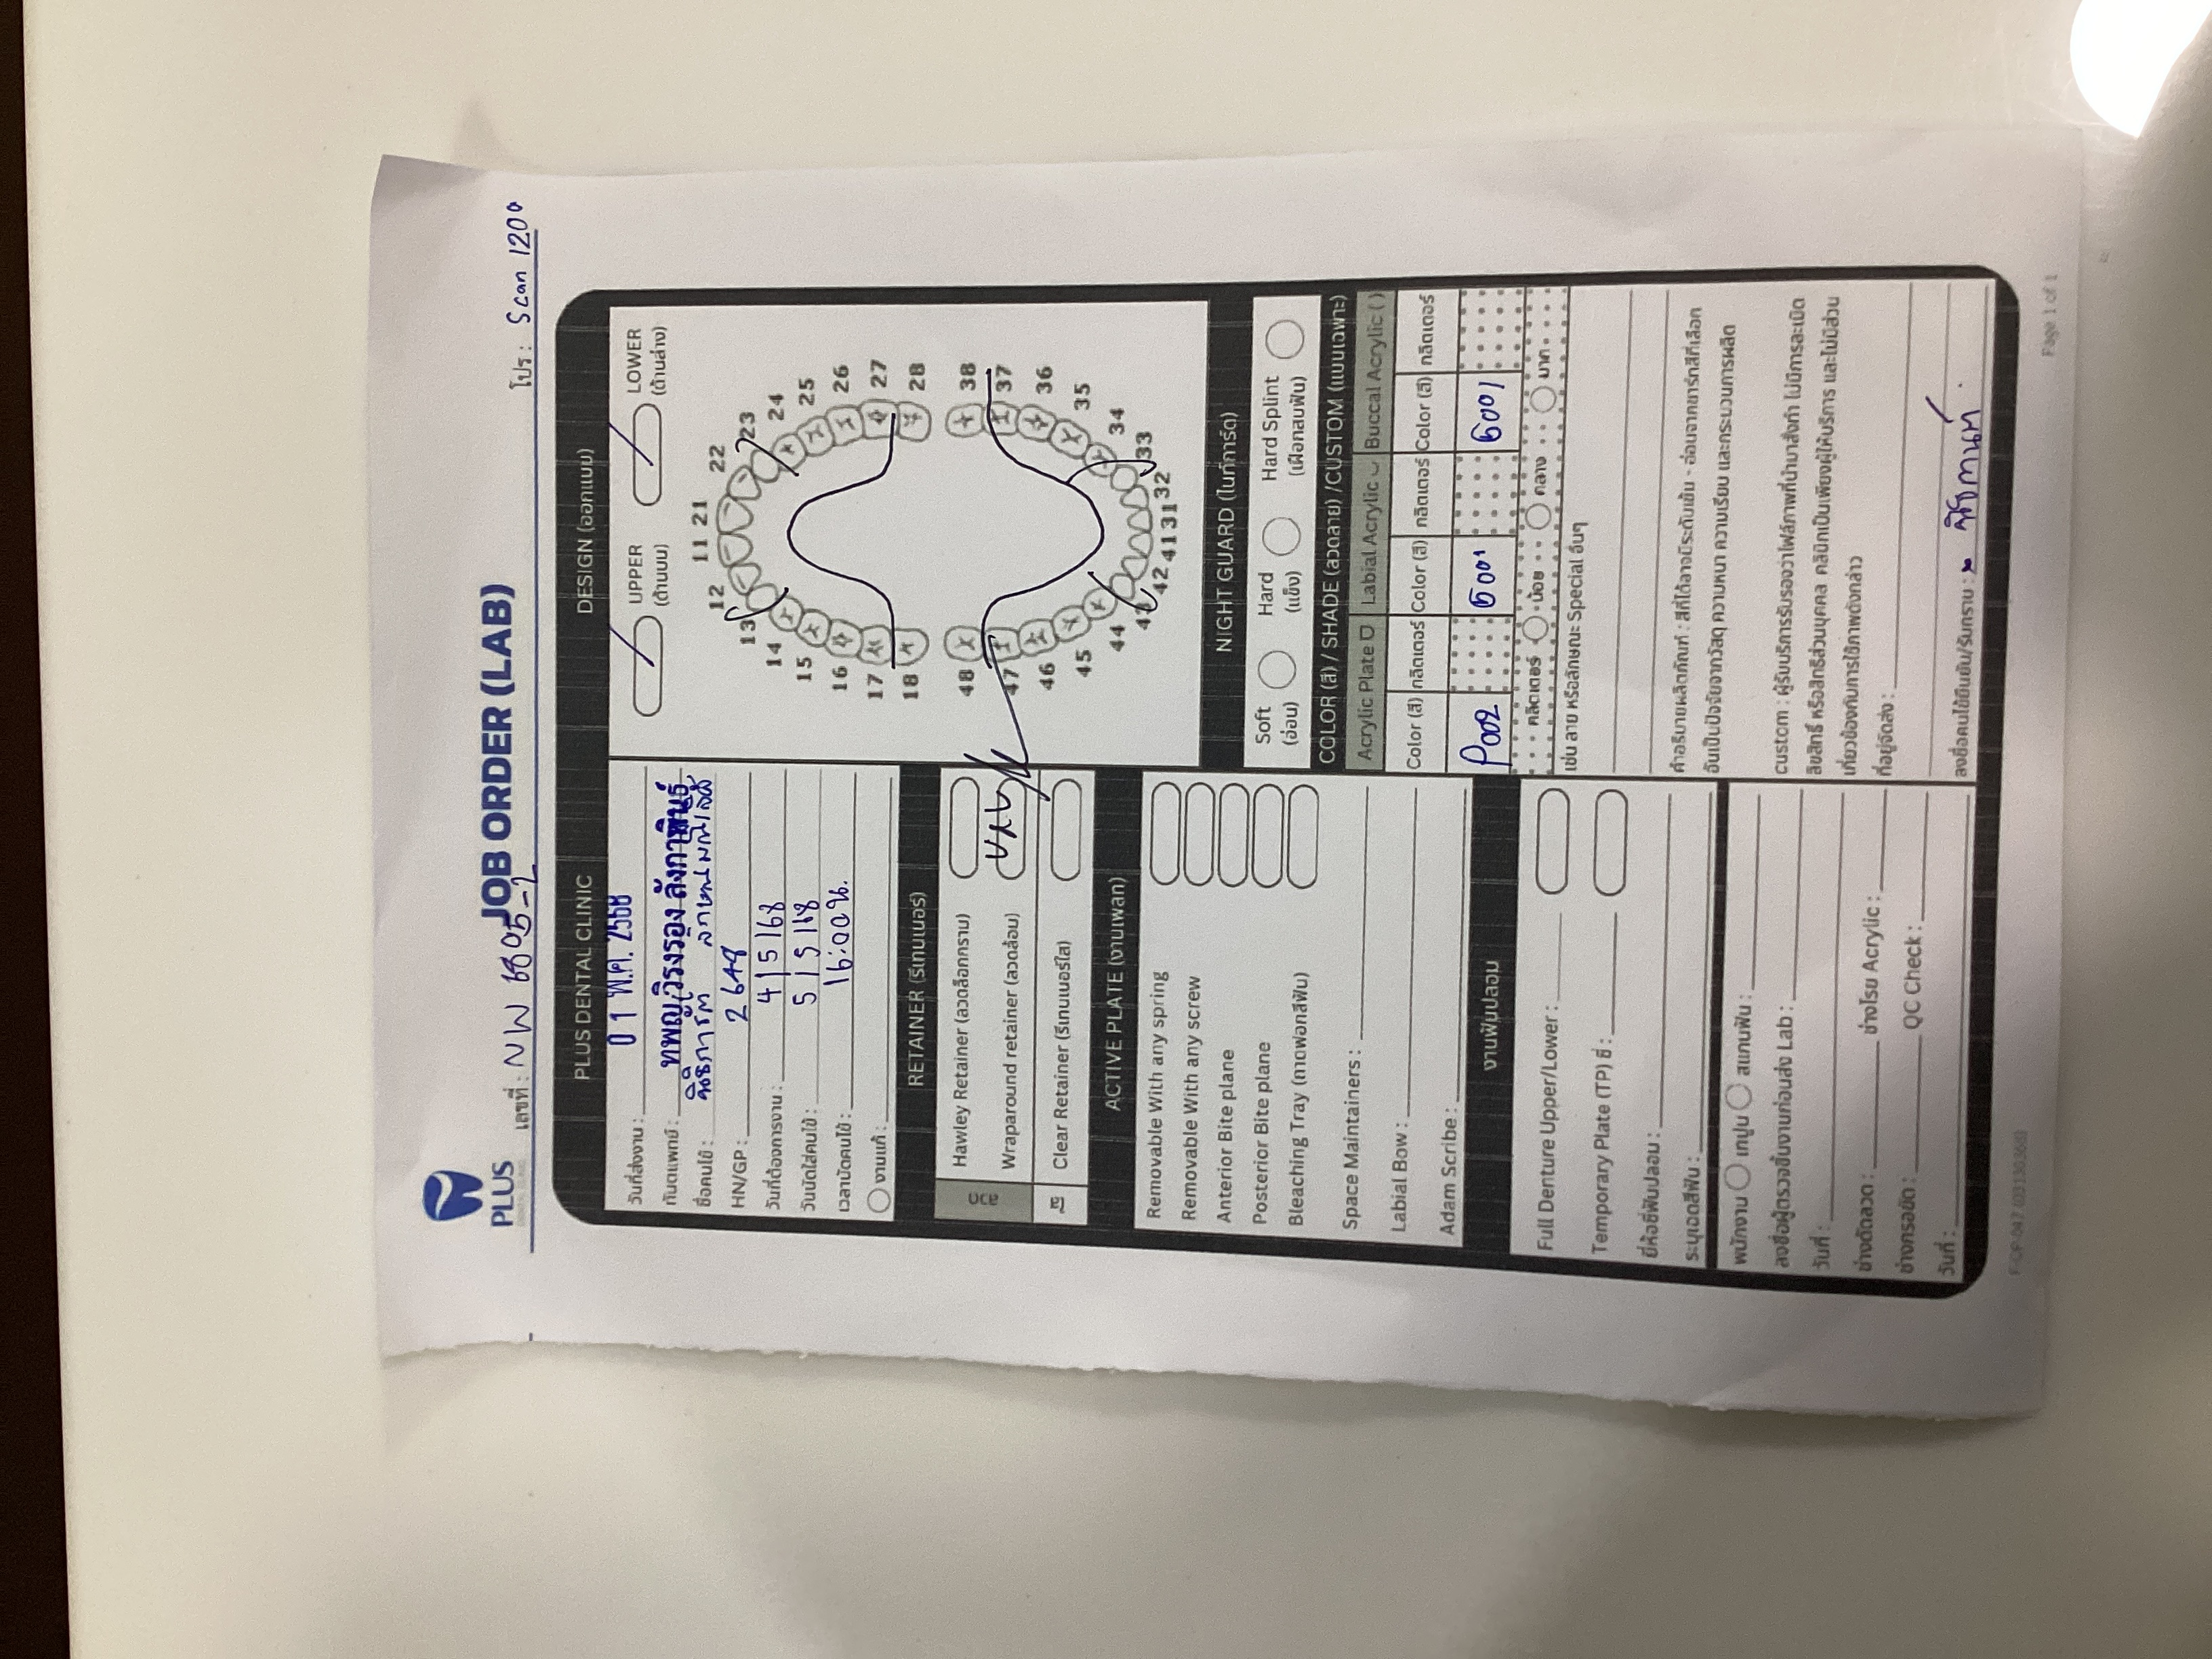 PLUS
DENTAL CLINIC
JOB ORDER (LAB)
เลขที่ : NW 6805-2
โปร : Scan 1200
PLUS DENTAL CLINIC
วันที่ส่งงาน : 01 พ.ค. 2568
ทันตแพทย์ : ทพญ.วิรงรอง ลังกาพินธุ์
ชื่อคนไข้ :
HN/GP : 2648
วันที่ต้องการงาน : 4|5|68
วันนัดใส่คนไข้ : 5|5|68
เวลานัดคนไข้ : 16:00น.
งานแก้ :
RETAINER (รีเทนเนอร์)
ลวด
Hawley Retainer (ลวดล็อกกราม)
Wraparound retainer (ลวดล้อม) บน
ใส
Clear Retainer (รีเทนเนอร์ใส)
ACTIVE PLATE (งานเพลท)
Removable With any spring
Removable With any screw
Anterior Bite plane
Posterior Bite plane
Bleaching Tray (ถาดฟอกสีฟัน)
Space Maintainers :
Labial Bow :
Adam Scribe :
งานฟันปลอม
Full Denture Upper/Lower :
Temporary Plate (TP) ซี่ :
ยี่ห้อซี่ฟันปลอม :
ระบุเฉดสีฟัน :
พนักงาน เทปูน สแกนฟัน :
ลงชื่อผู้ตรวจชิ้นงานก่อนส่ง Lab :
วันที่ :
ช่างดัดลวด : ช่างโรย Acrylic :
ช่างกรอขัด : QC Check :
วันที่ :
DESIGN (ออกแบบ)
UPPER (ด้านบน)
LOWER (ด้านล่าง)
11 21
12 22
13 23
14 24
15 25
16 26
17 27
18 28
48 38
47 37
46 36
45 35
44 34
43 33
42 41 31 32
NIGHT GUARD (ไนท์การ์ด)
Soft (อ่อน)
Hard (แข็ง)
Hard Splint (เฝือกสบฟัน)
COLOR (สี) / SHADE (ลวดลาย) /CUSTOM (แบบเฉพาะ)
Acrylic Plate Labial Acrylic Buccal Acrylic ( )
Color (สี) กลิตเตอร์ Color (สี) กลิตเตอร์ Color (สี) กลิตเตอร์
P002 G001 G001
กลิตเตอร์ น้อย กลาง มาก
เช่น ลาย หรือลักษณะ Special อื่นๆ
คำอธิบายผลิตภัณฑ์ : สีที่ได้อาจมีระดับเข้ม - อ่อนจากชาร์ทสีที่เลือก
อันเป็นปัจจัยจากวัสดุ ความหนา ความเรียบ และกระบวนการผลิต
custom : ผู้รับบริการรับรองว่าไฟล์ภาพที่นำมาสั่งทำ ไม่มีการละเมิด
ลิขสิทธิ์ หรือสิทธิส่วนบุคคล คลินิกเป็นเพียงผู้ให้บริการ และไม่มีส่วน
เกี่ยวข้องกับการใช้ภาพดังกล่าว
ที่อยู่จัดส่ง :
ลงชื่อคนไข้ยืนยัน/รับทราบ :
F-OP-047 (03130368)
Page 1 of 1